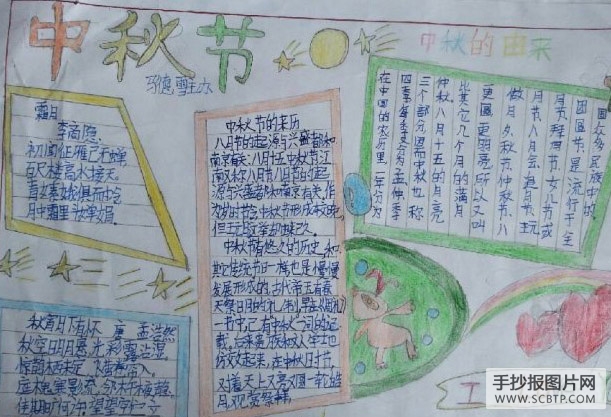 中秋节
马德雪主办
中秋的由来
霜月
李商隐
初闻征雁已无蝉
百尺楼高水接天
青女素娥俱耐冷
月中霜里斗婵娟
中秋节的来历
八月节的起源与兴盛都和
南京有关八月十五中秋节江
南又称八月节八月节的起
源与兴盛都和南京有关作
为岁时节令中秋节形成较晚
中秋节有悠久的历史和
其它传统节一样也是慢慢
发展形成的古代帝王有春
天祭日
一书中已有中秋一词的记
载后来贵族和文人学士也
仿效起来在中秋时节
对着天上又亮又圆一轮皓
月观赏祭拜
在中国的农历里一年分为
四季每季又分为孟仲季
三个部分因而中秋也称
仲秋八月十五的月亮
比其它几个月的满月
更圆更明亮所以又叫
做月夕秋节仲秋节八
月节八月会追月节玩
月节拜月节女儿节或
团圆节是流行于全
国众多民族中的
秋宵月下有怀 孟浩然
秋空明月悬光彩露沾湿
惊鹊栖未定飞萤卷帘入
庭槐寒影疏邻杵夜声急
佳期旷何许望望空伫立
手抄报图片网
WWW.SCBTP.COM